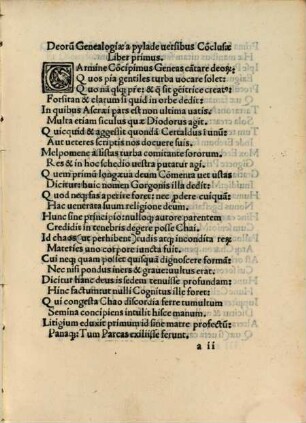 Deorũ Genealogiæ a pylade uersibus Cõclusæ
Liber primus.
CArmine Cõcipimus Geneas cãtare deoꝝ:
Quos pia gentiles turba uocare solet:
Quo nã qꝗ pr̃e: & q̃ sit geĩtrice creatꝰ:
Forsitan & clarum si quid in orbe dedit:
In quibus Ascræi pars est non ultima uatis.
Multa etiam siculus quæ Diodorus agit.
Quicquid & aggessit quondã Certaldus ĩ unũ:
Aut ueteres scriptis nos docuere suis.
Melpomene a iustas turba comitante sororum.
Res & in hoc schedio uestra putatur agi.
Quem primũ longæua deum Cõmenta uetustas
Dicitur: huic nomen Gorgonis illa dedit:
Quod neqꝫ fas aperire foret: nec pdere cuiquam:
Hac uenerata suum religione deum.
Hunc sine prĩncipio: nulloqꝫ autore parentem
Credidit in tenebris degere posse Chai.
Id chaos (ut perhibent) rudis atqꝫ incondita reꝝ
Materies uno corpore iuncta fuit.
Cui neqꝫ quam posset quisquã dignoscere formã:
Nec nisi pondus iners & graue: uultus erat.
Dicitur hanc deus is sedem tenuisse profundam:
Hinc factum ut nulli Cognitus ille foret:
Qui congesta Chao discordia ferre tumultum
Semina concipiens intulit hisce manum.
Litigium eduxit primum id sine matre profectũ:
Panaqꝫ: Tum Parcas exiliisse ferunt.
a ii